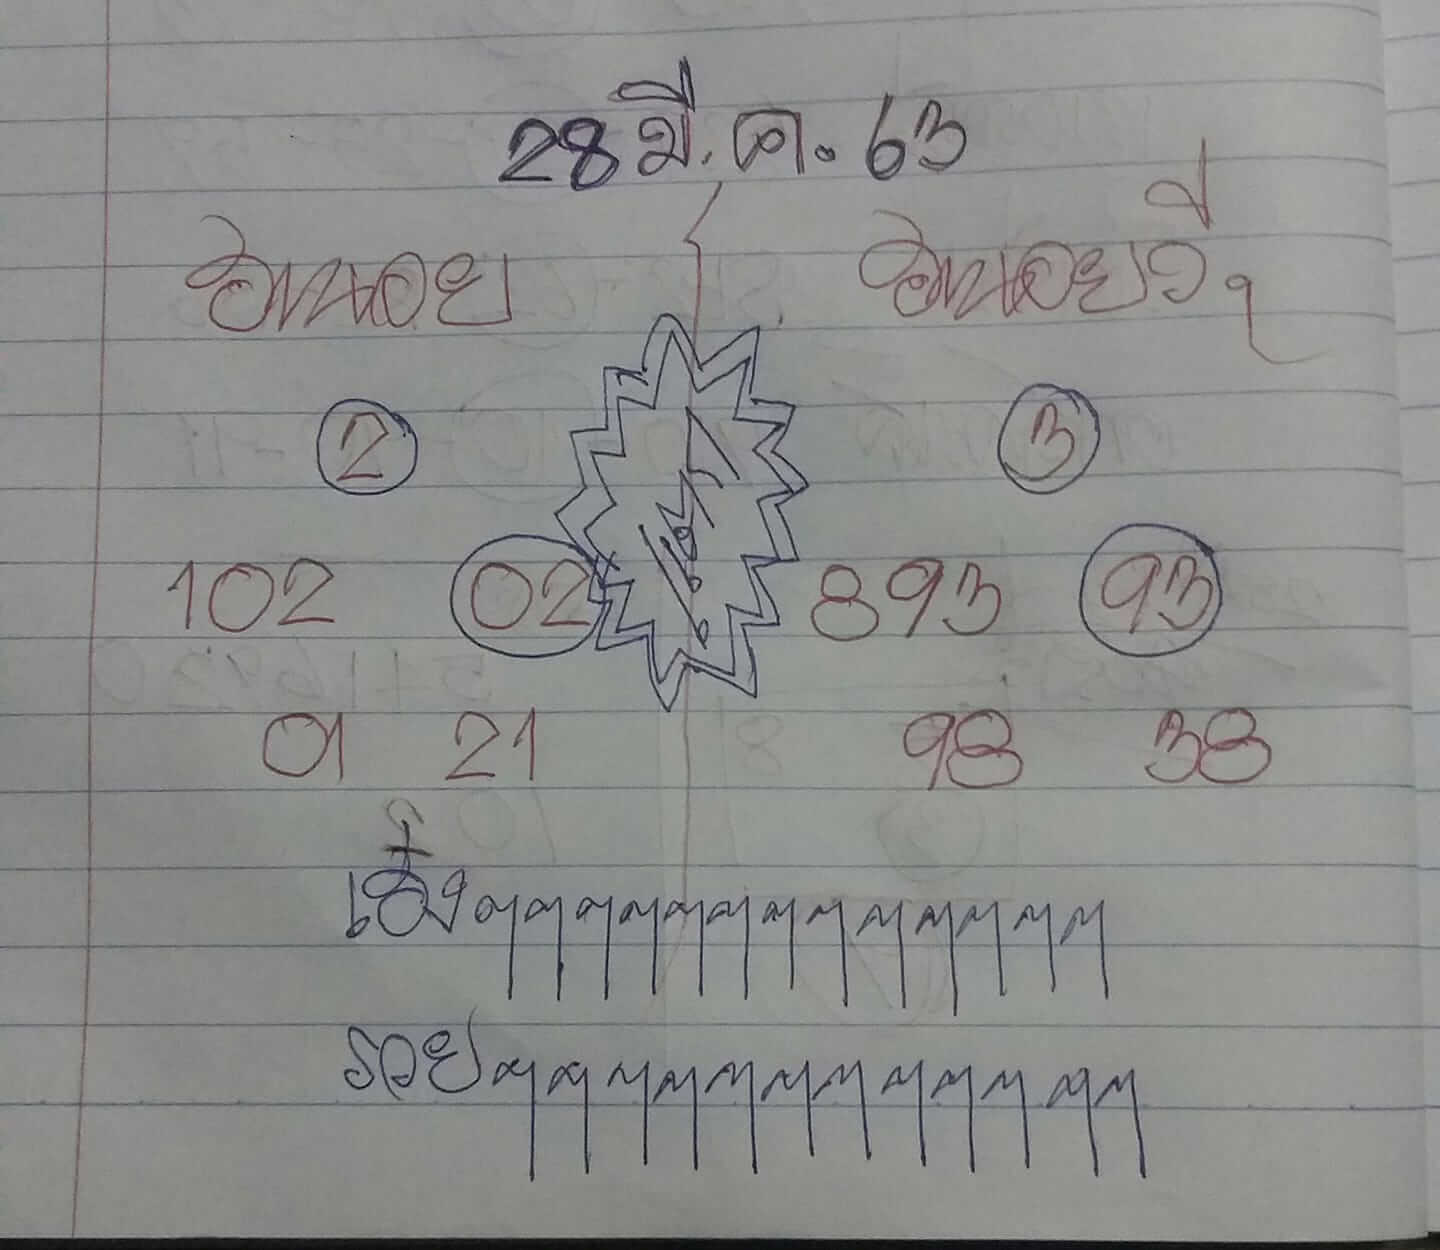 28 มี.ค. 63
ฮานอย ฮานอยวีไอพี
2 3
102 02 893 93
01 21 98 38
เฮงๆๆๆๆๆๆๆๆๆๆๆๆๆ
รวยๆๆๆๆๆๆๆๆๆๆๆๆ